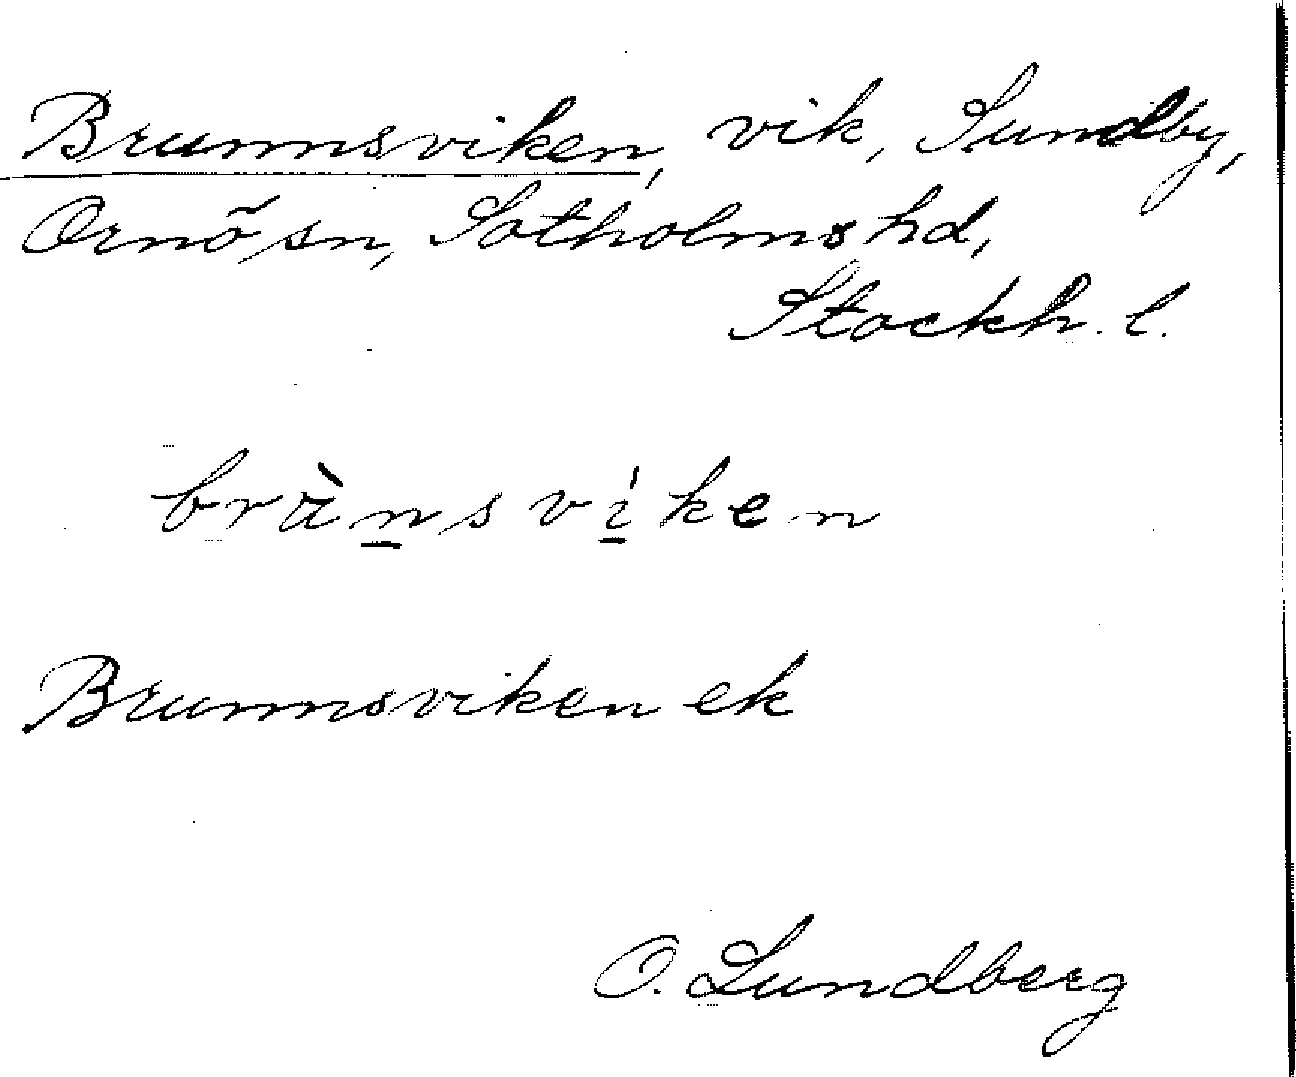 Brunnsviken, vik, Sundby,
Ornö sn, Sotholms hd,
Stockh. l.
brùnsvíken
Brunnsviken ek
O. Lundberg